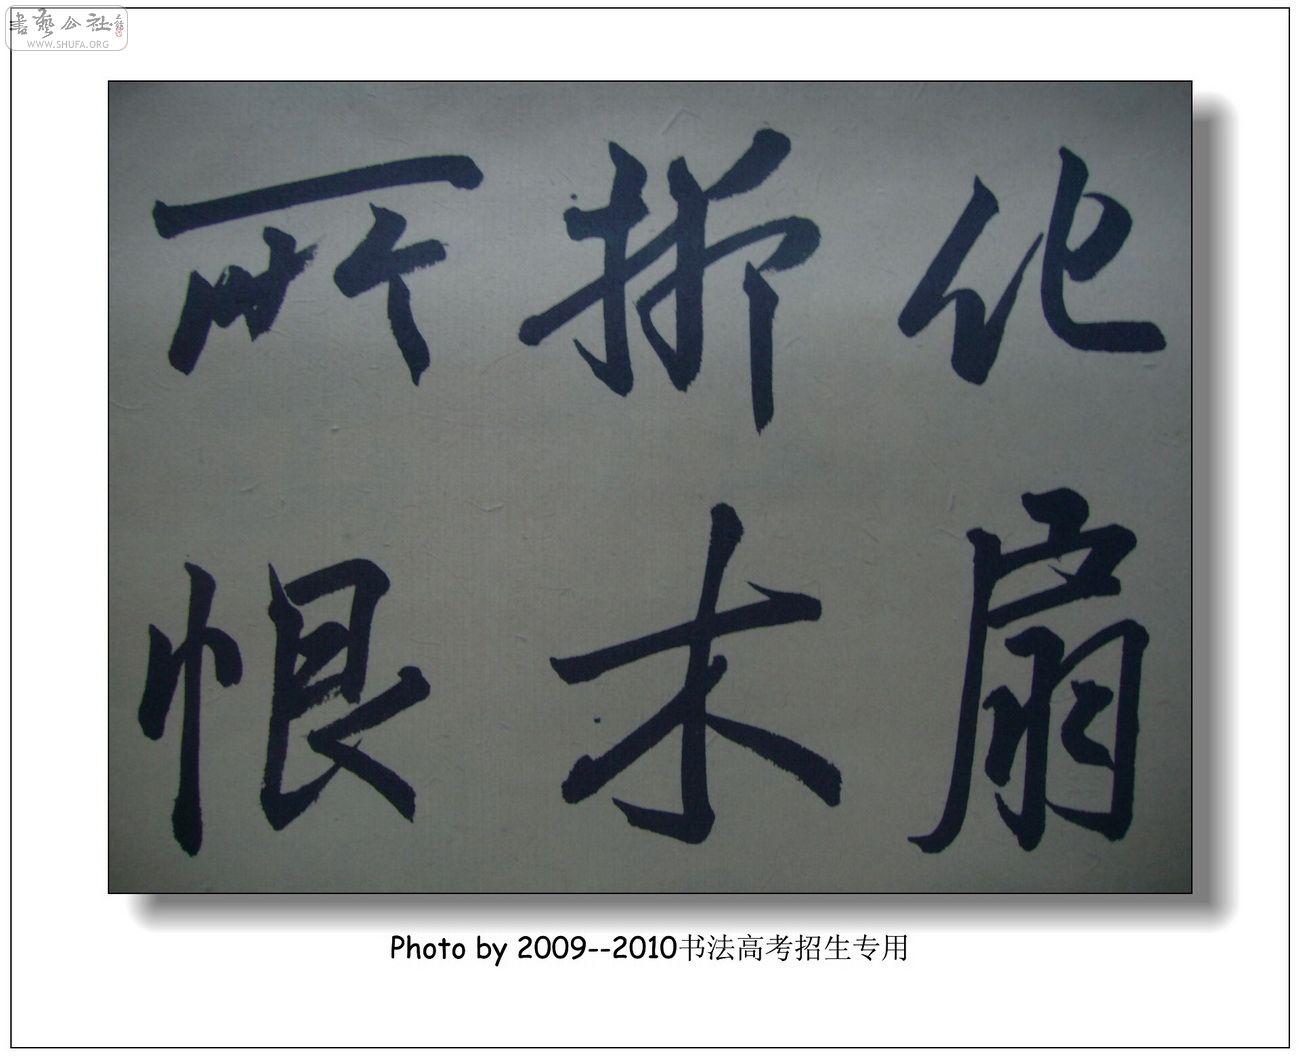 書藝公社
WWW.SHUFA.ORG
化扇
折木
所恨
Photo by 2009--2010书法高考招生专用